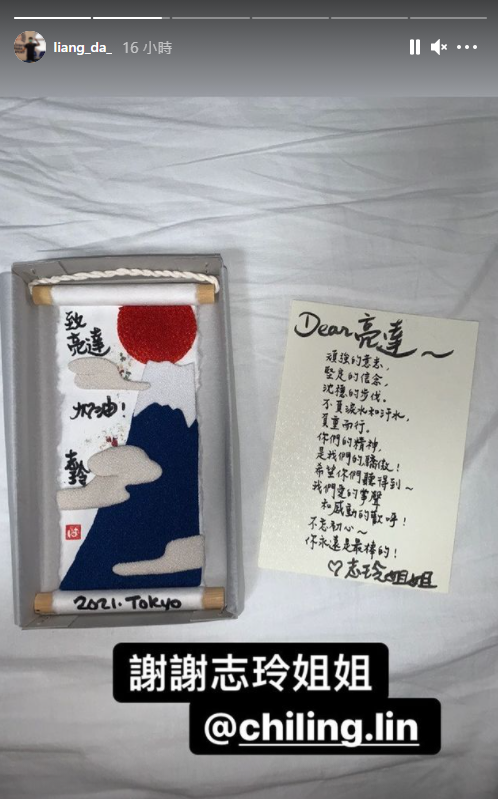 liang_da_ 16 小時
致
亮達
加油!
志玲
2021. Tokyo
Dear 亮達~
頑強的意志,
堅定的信念,
沈穩的步伐。
不負淚水和汗水,
負重而行。
你們的精神,
是我們的驕傲!
希望你們聽得到~
我們愛的掌聲
和感動的歡呼!
不忘初心~
你永遠是最棒的!
♡志玲姐姐
謝謝志玲姐姐
@chiling.lin